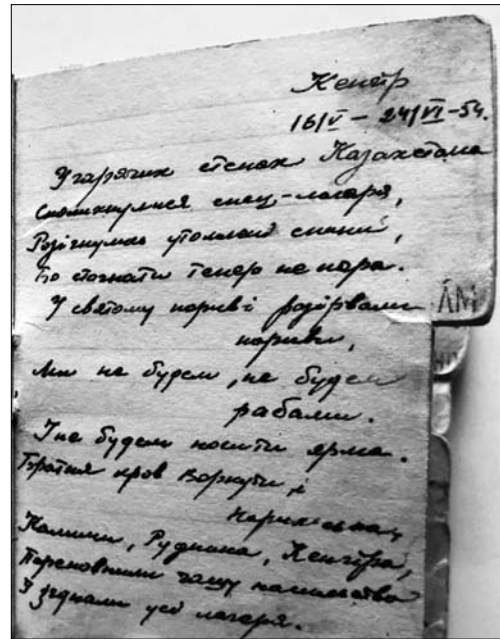 Кенгір
16/V – 24/VI-54.
У гарячих степах Казахстана
Сколихнулися спец-лагеря,
Розігнулись утомлені спини,
Бо стогнати тепер не пора.
У святому пориві розірвали
пориви,
Ми не будем, не будем
рабами.
І не будем носити ярма.
Братня кров Воркути, і
Норильська,
Колими, Рудника, Кенгіра,
Переповнили чашу насильства
З'єднали усі лагеря.
ЛМ